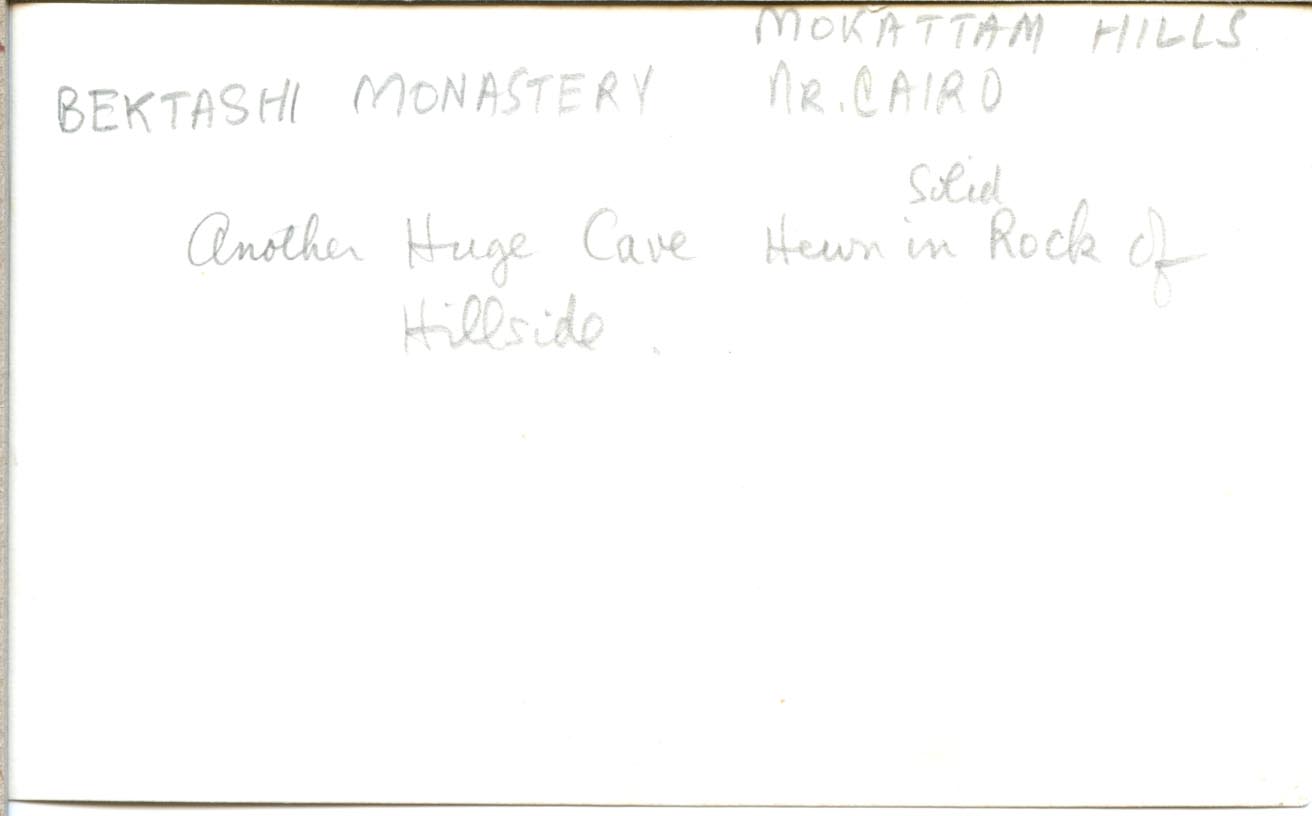 MOKATTAM HILLS
BEKTASHI MONASTERY NR. CAIRO
Solid
Another Huge Cave Hewn in Rock of
Hillside.